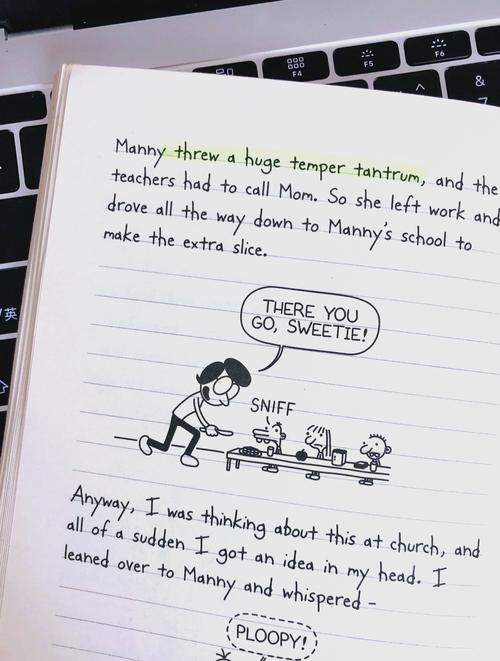 F4
F5
F6
&
7
^
英
Manny threw a huge temper tantrum, and the
teachers had to call Mom. So she left work and
drove all the way down to Manny's school to
make the extra slice.
THERE YOU
GO, SWEETIE!
SNIFF
Anyway, I was thinking about this at church, and
all of a sudden I got an idea in my head. I
leaned over to Manny and whispered -
PLOOPY!